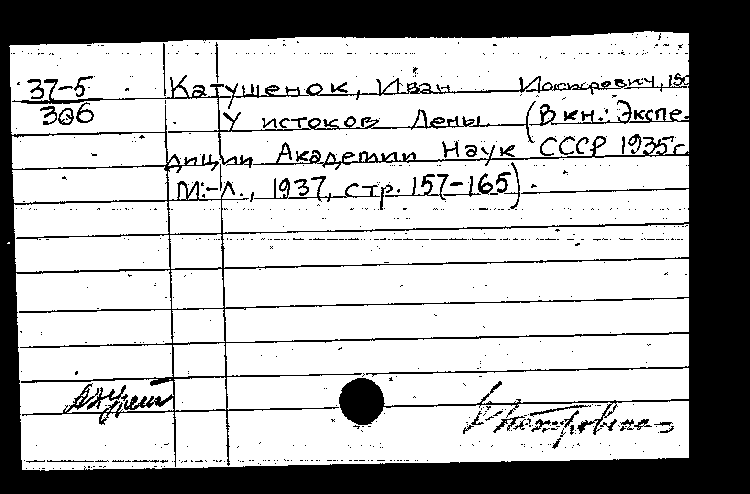 37-5 Катушенок, Иван
306 У истоков Лены (В кн.: Экспе-
диции Академии Наук СССР 1935 г.
М.-Л., 1937, стр. 157-165).